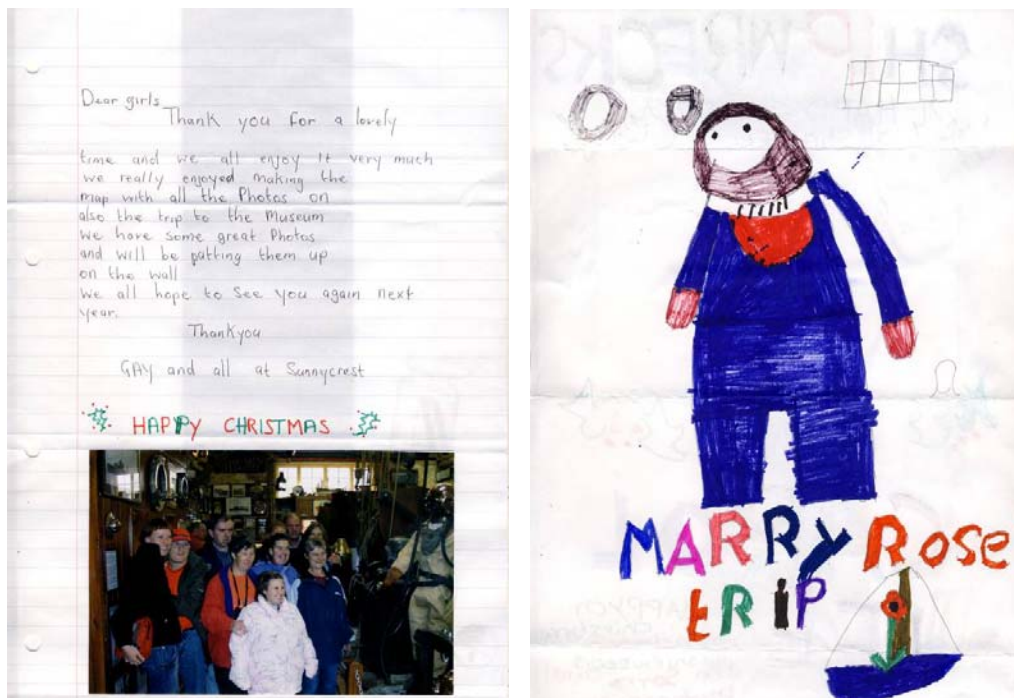 Dear girls
Thank you for a lovely
time and we all enjoy It very much
we really enjoyed making the
map with all the Photos on
also the trip to the Museum
We have some great Photos
and will be putting them up
on the wall
We all hope to See you again next
year.
Thankyou
GAY and all at Sunnycrest
HAPPY CHRISTMAS
SHIPWRECKS
MARRY ROSE
tRIP
HAPPY